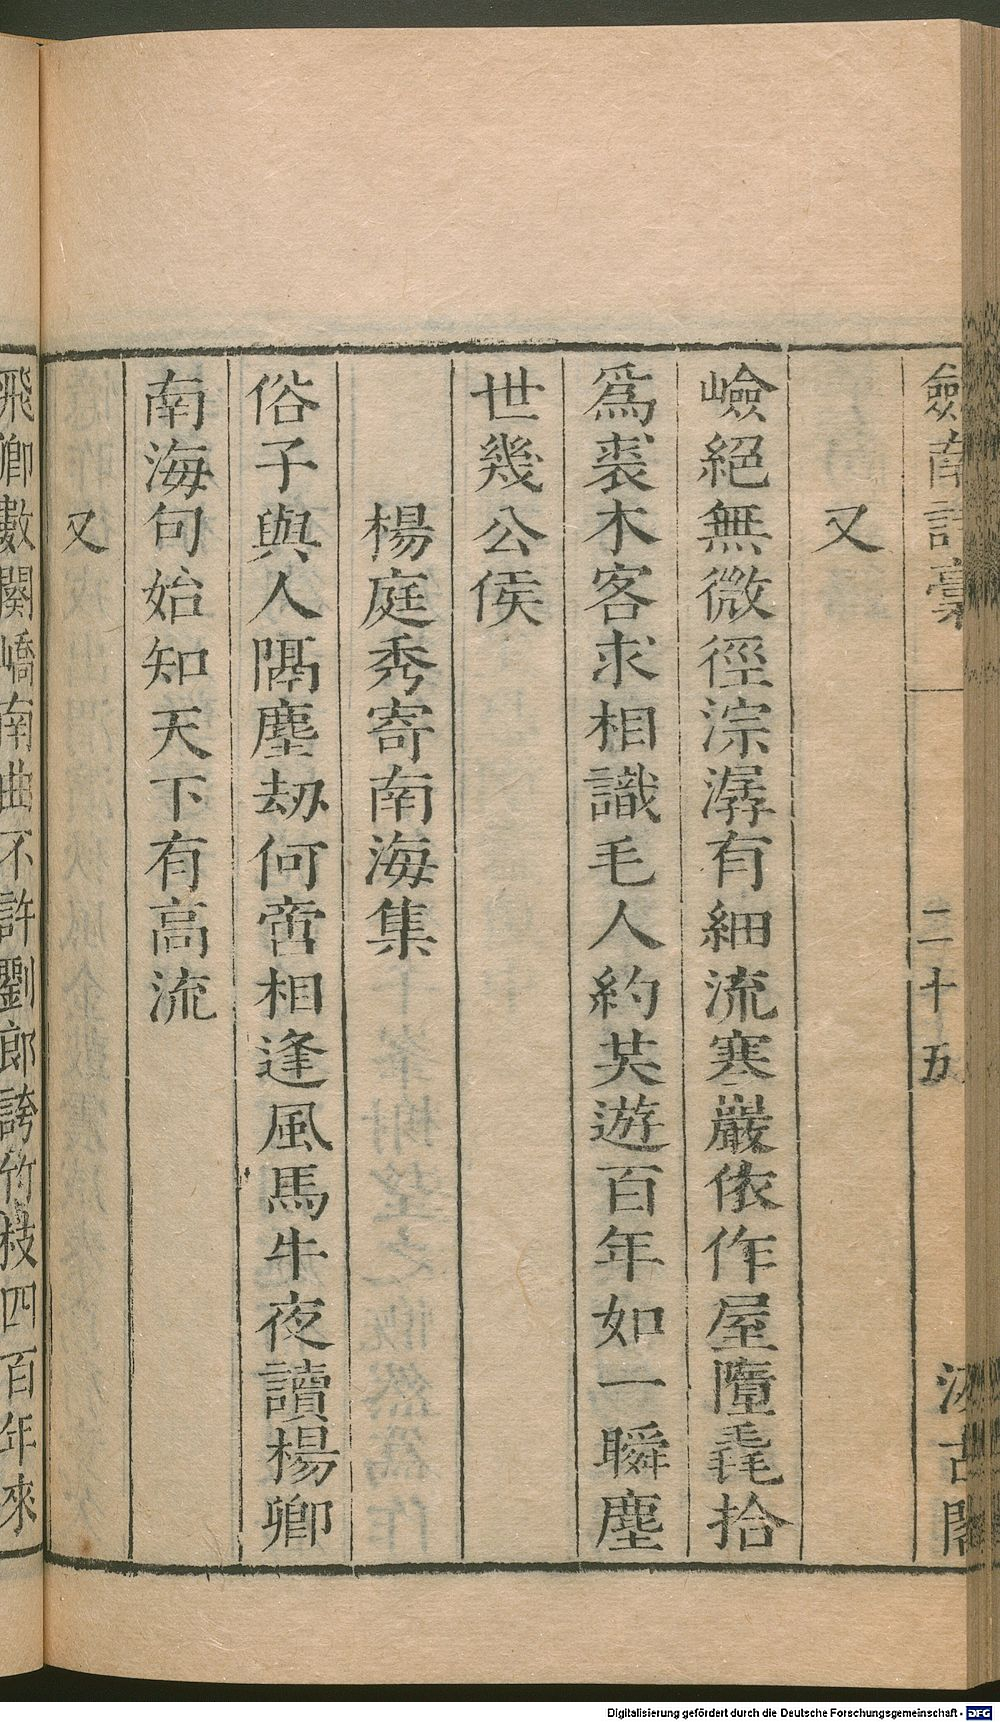 劒南詩稾 二十五 汲古閣
又
嶮絕無微徑淙潺有細流寒巖依作屋墮毳拾
爲裘木客求相識毛人約共遊百年如一瞬塵
世幾公侯
楊庭秀寄南海集
俗子與人隔塵劫何啻相逢風馬牛夜讀楊卿
南海句始知天下有高流
又
飛卿數闋嶠南曲不許劉郎誇竹枝四百年來
Digitalisierung gefördert durch die Deutsche Forschungsgemeinschaft - DFG